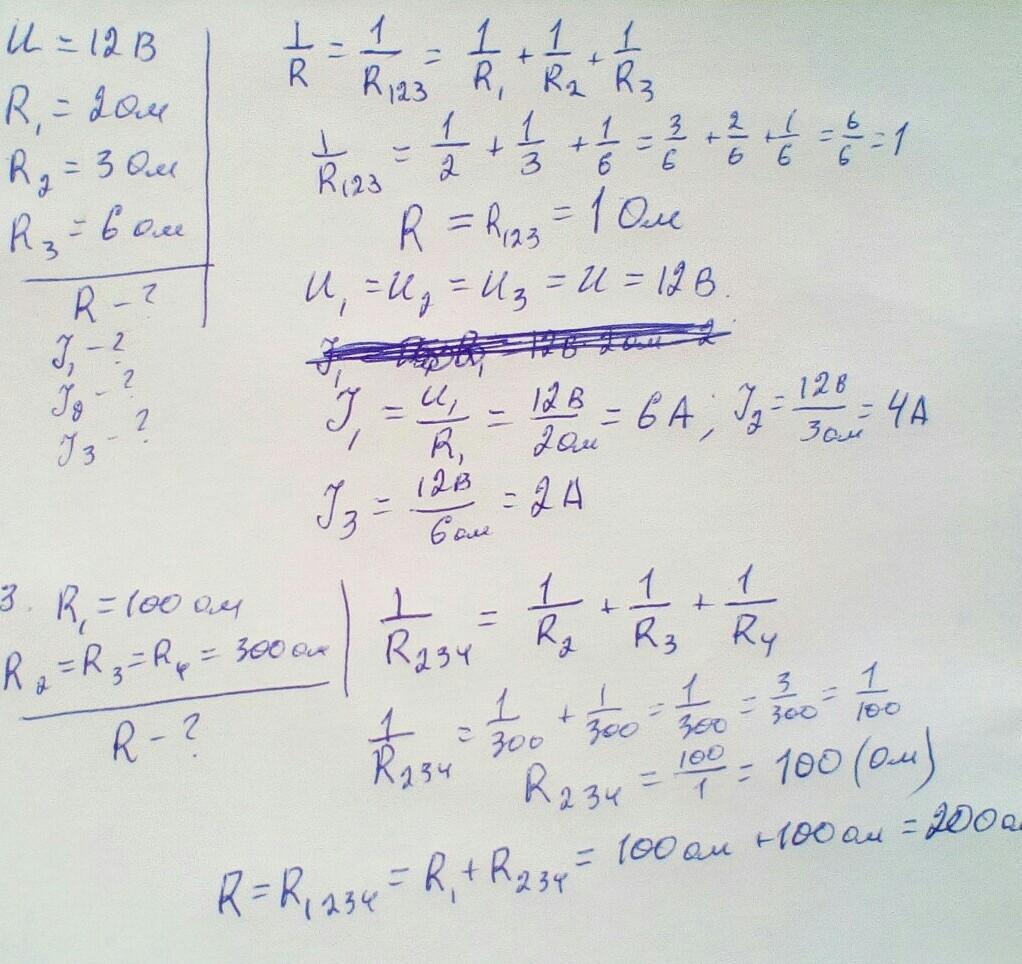 U = 12 В
R₁ = 2 Ом
R₂ = 3 Ом
R₃ = 6 Ом
R - ?
J₁ - ?
J₂ - ?
J₃ - ?
1/R = 1/R₁₂₃ = 1/R₁ + 1/R₂ + 1/R₃
1/R₁₂₃ = 1/2 + 1/3 + 1/6 = 3/6 + 2/6 + 1/6 = 6/6 = 1
R = R₁₂₃ = 1 Ом
U₁ = U₂ = U₃ = U = 12 В.
J₁ = U₁/R₁ = 12 В/2 Ом = 6 А; J₂ = 12 В/3 Ом = 4 А
J₃ = 12 В/6 Ом = 2 А
3. R₁ = 100 Ом
R₂ = R₃ = R₄ = 300 Ом
R - ?
1/R₂₃₄ = 1/R₂ + 1/R₃ + 1/R₄
1/R₂₃₄ = 1/300 + 1/300 = 1/300 = 3/300 = 1/100
R₂₃₄ = 100/1 = 100 (Ом)
R = R₁₂₃₄ = R₁ + R₂₃₄ = 100 Ом + 100 Ом = 200 О